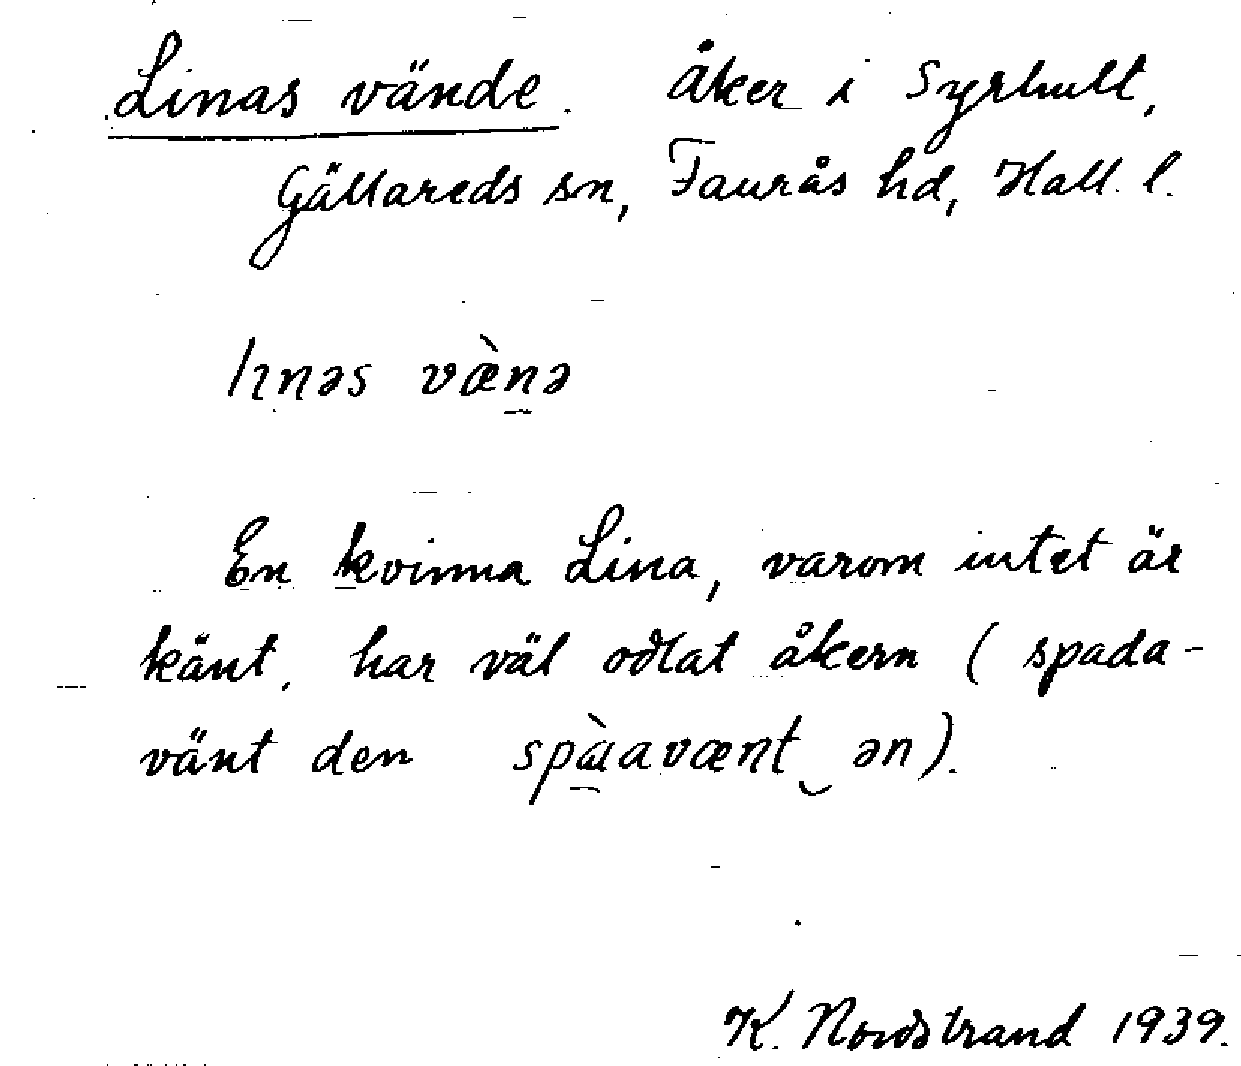 Linas vände. Åker i Syrhult,
Gällareds sn, Faurås hd, Hall. l.
lınəs væ̀nə
En kvinna Lina, varom intet är
känt, har väl odlat åkern (spada-
vänt den spàavænt‿ən).
K. Nordstrand 1939.